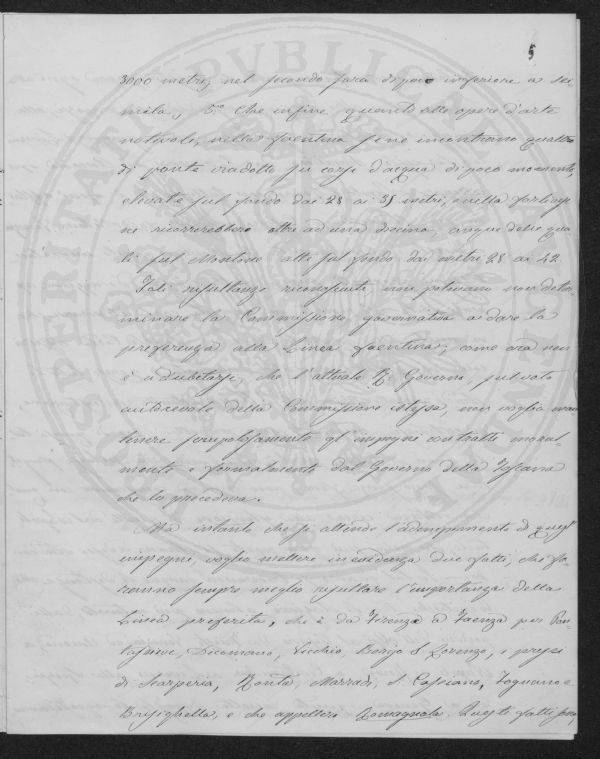 5
3000 metri, nel secondo sara di poco inferiore a sei
mila, 5º Che infine quanto alle opere d'arte
notevoli, nella faentina se ne incontrano quattro
di ponte viadotto su corsi d'acqua di poco momento,
elevate sul fondo dai 28 ai 35 metri, e nella forlivese
ne ricorrerebbero oltre ad una decina, cinque delle qua
li sul Montone alte sul fondo dai metri 28 ai 42.
Tali risultanze riconosciute, non potevano non deter
minare la Commissione governativa a dare la
preferenza alla Linea faentina; come ora non
è a dubitarsi, che l'attuale R. Governo, sul voto
autorevole della Commissione stessa, non voglia man
tenere scrupolosamente gl'impegni contratti moral-
mente e formalmente dal Governo della Toscana
che lo precedeva.
Ma intanto che si attende l'adempimento di quegl'
impegni, voglio mettere in evidenza due fatti, che fa
ranno sempre meglio risultare l'importanza della
Linea preferita, che è da Firenze a Faenza per Pon-
tassieve, Dicomano, Vicchio, Borgo S. Lorenzo, e pressi
di Scarperia, Ronta, Marradi, S. Cassiano, Fognano e
Brisighella, e che appellerò Romagnola. Questi fatti sono,